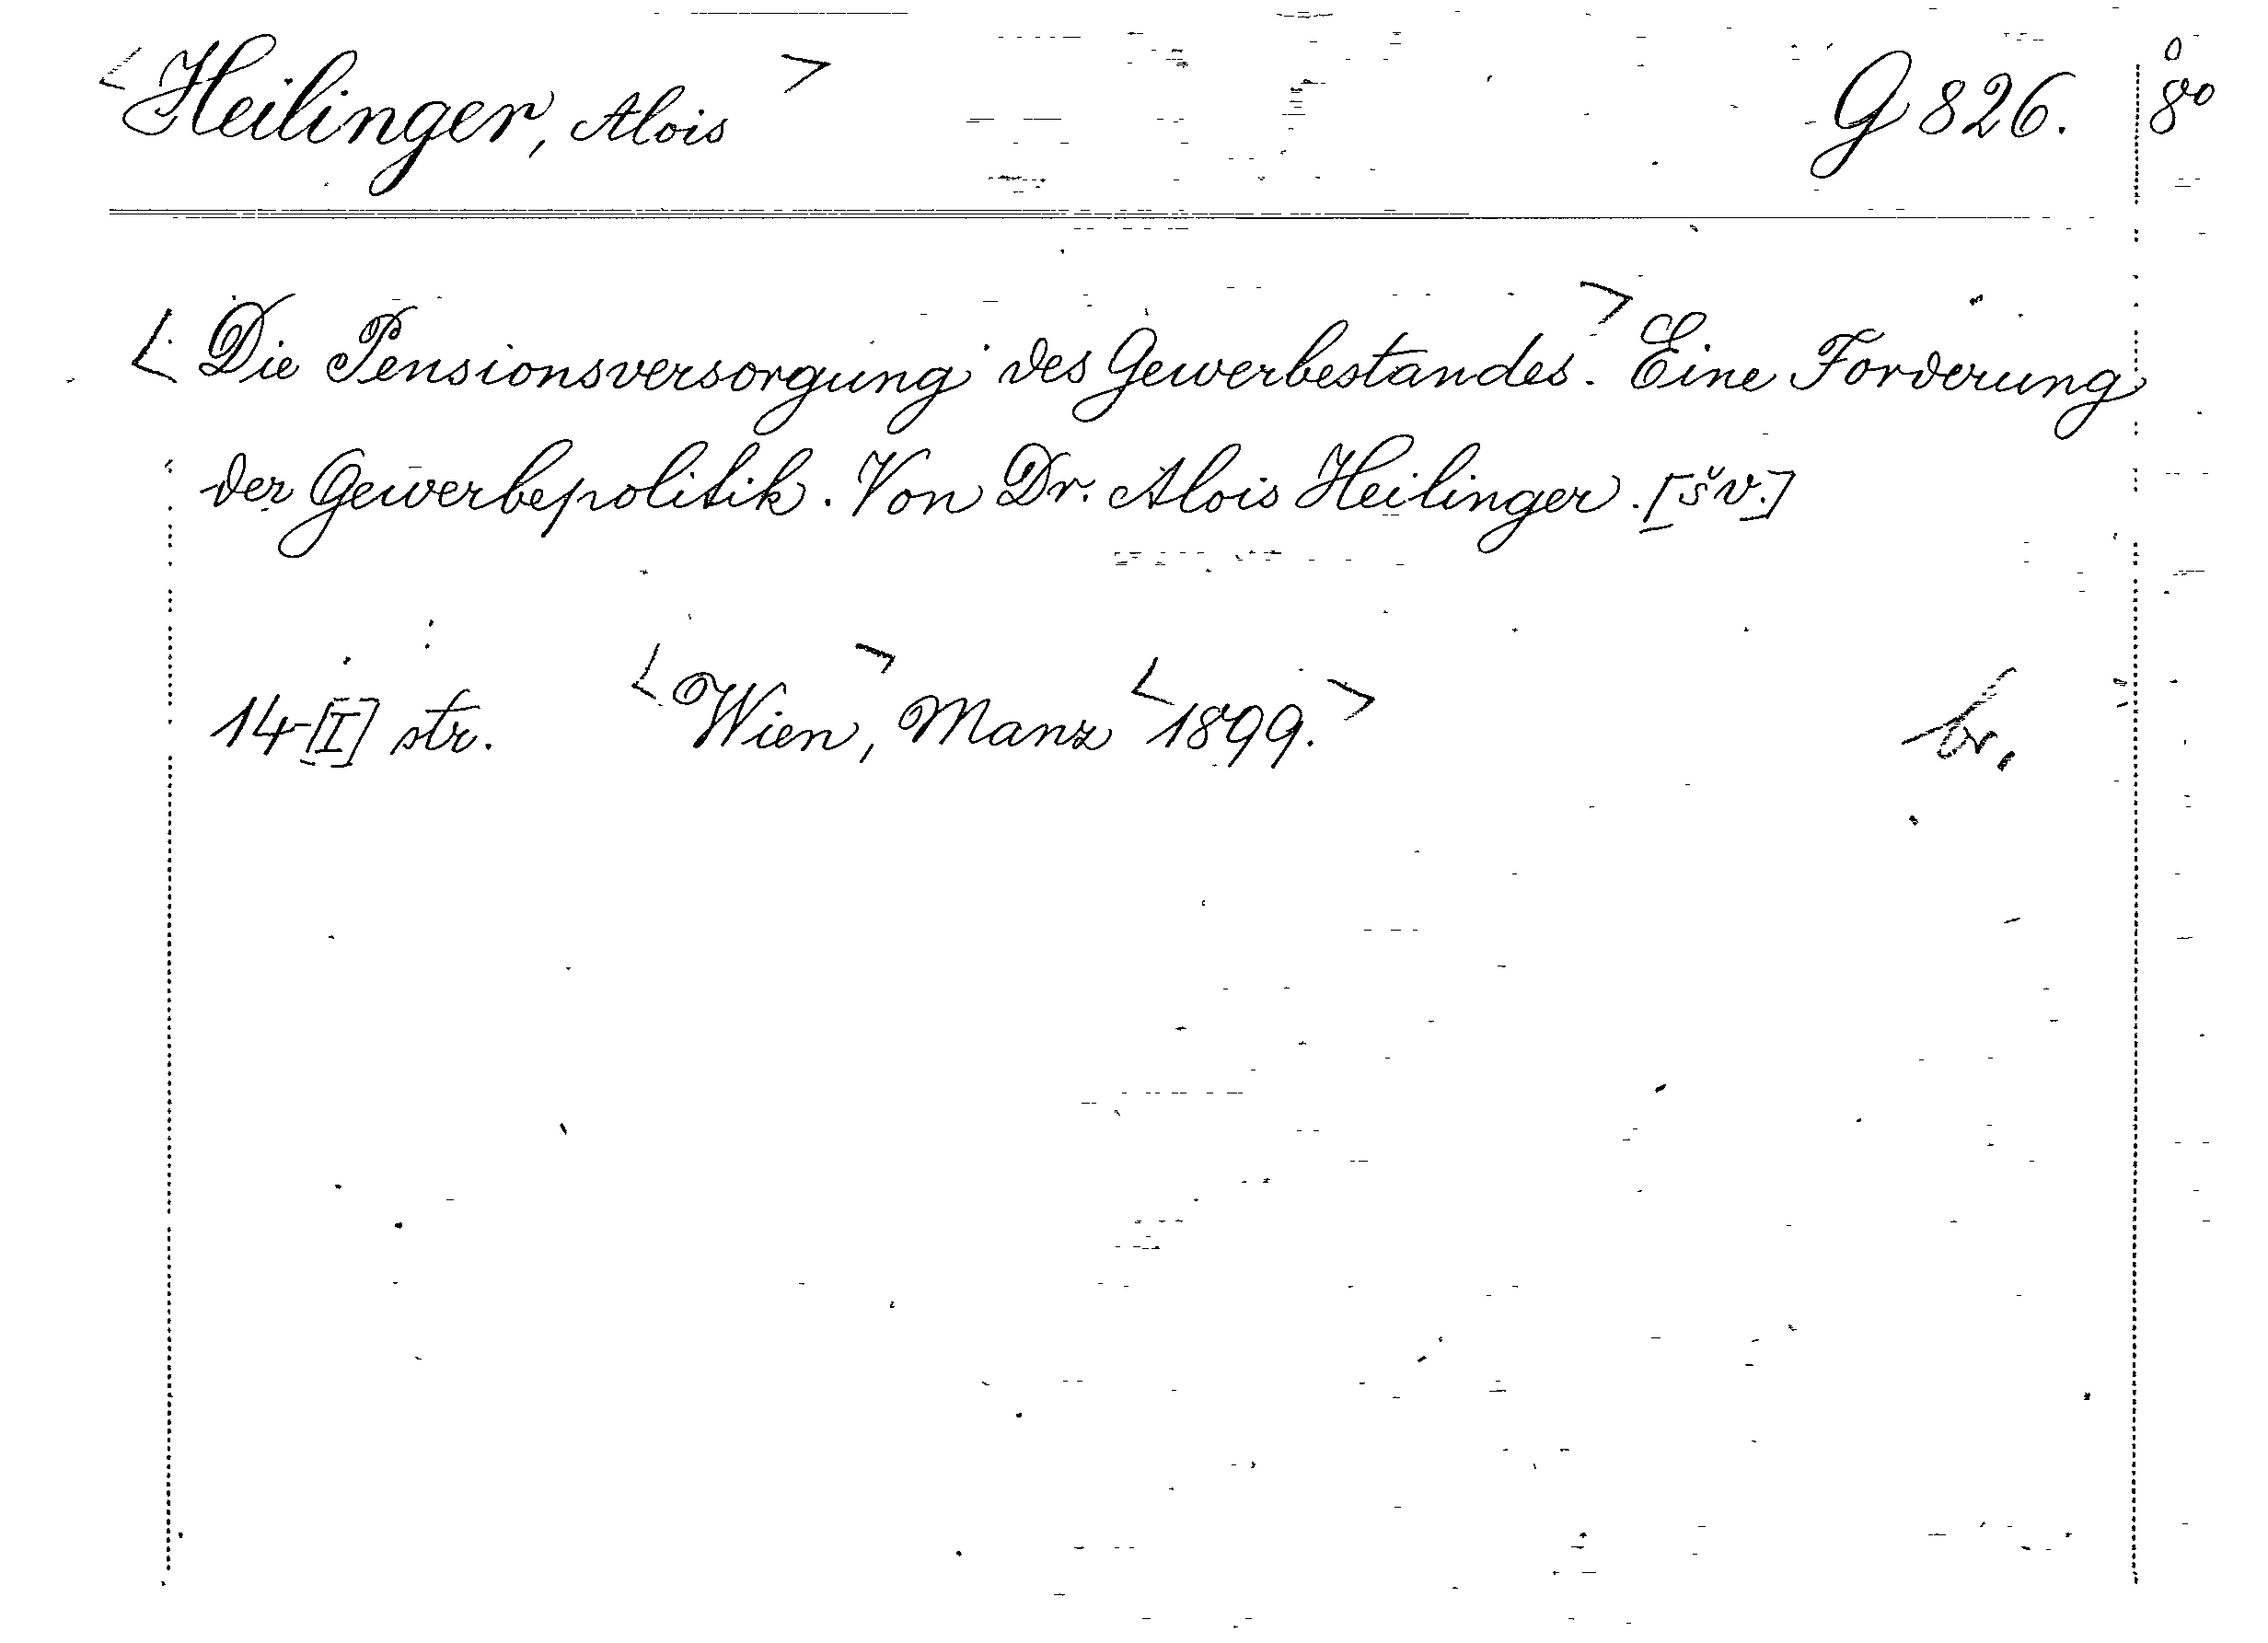 <Heilinger, Alois> G 826. 8°
<Die Pensionsversorgung des Gewerbestandes.> Eine Forderung
der Gewerbepolitik. Von Dr. Alois Heilinger. [šv.]
14-[I] str. <Wien>, Manz <1899.> br.